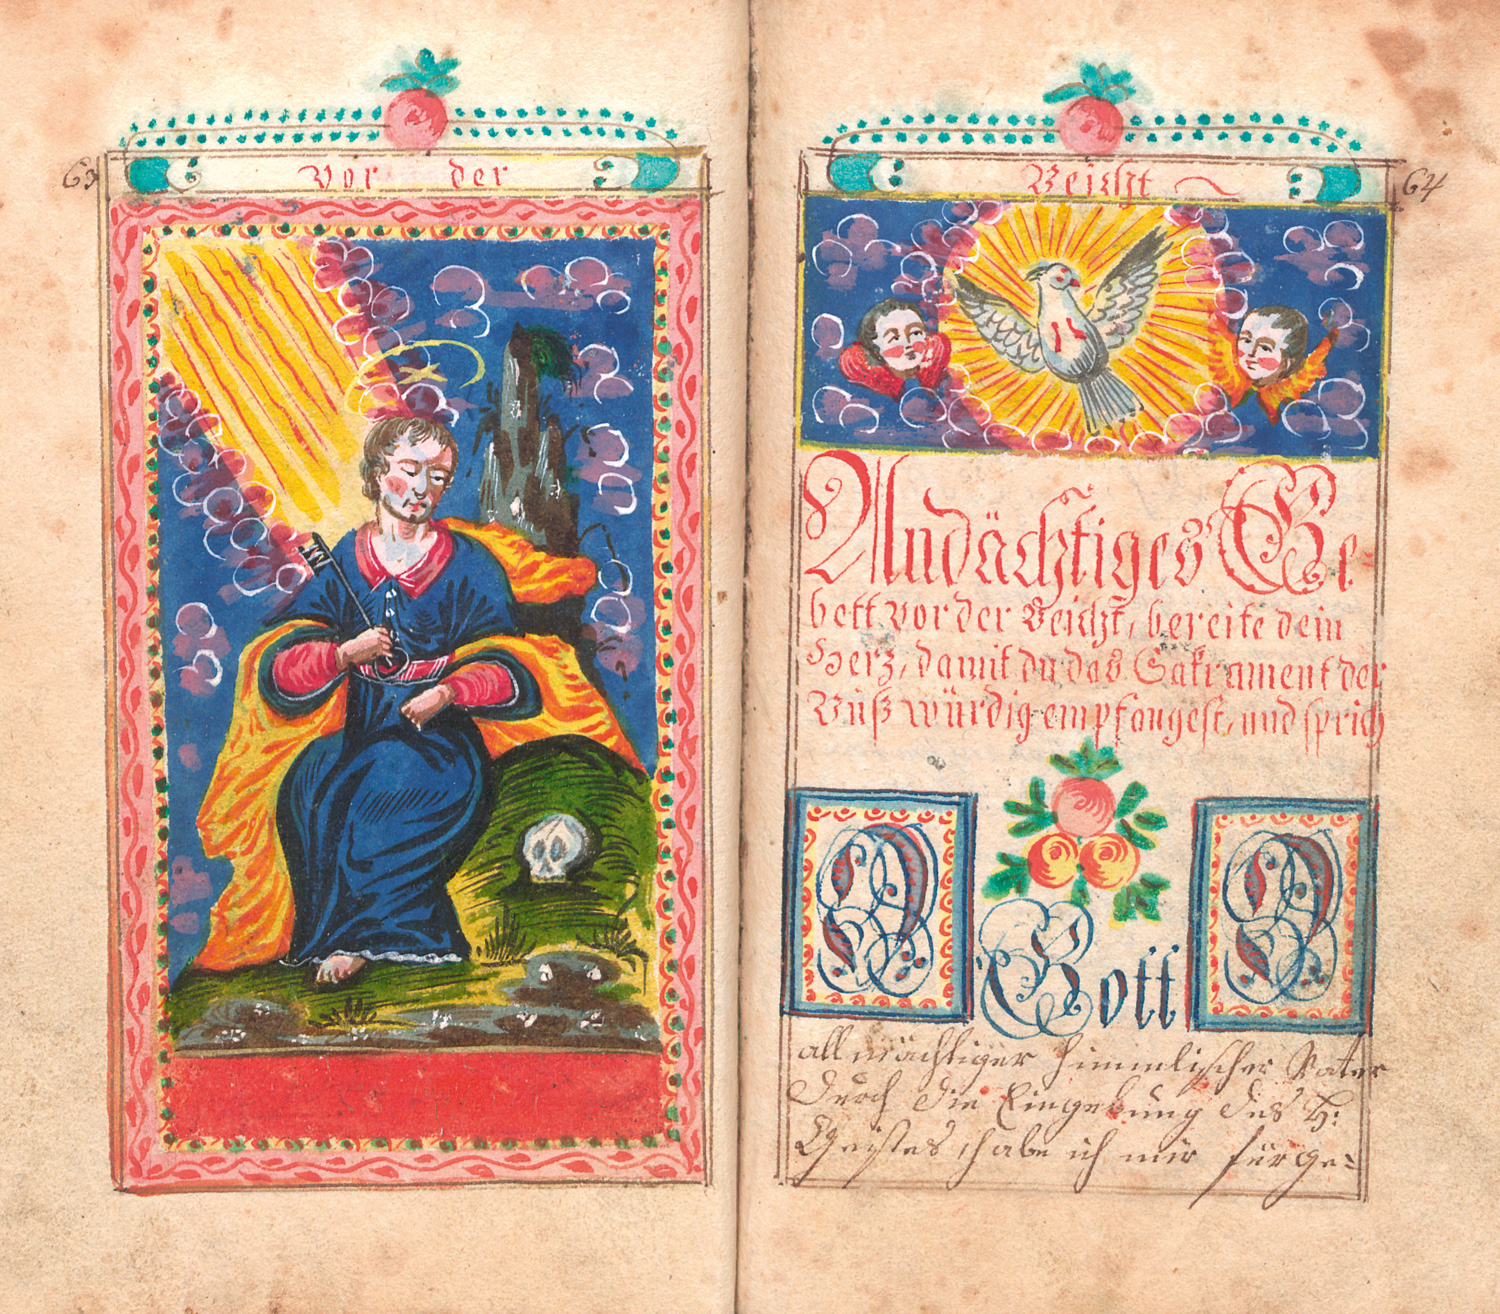 63
Vor der
Beicht
64
Andächtiges Ge
bett vor der Beicht, bereite dein
Herz, damit du das Sakrament der
Buß würdig empfangest, und sprich
O Gott O
allmächtiger himmlischer Vater
durch die Eingebung des H:
Geistes, habe ich mir fürge=